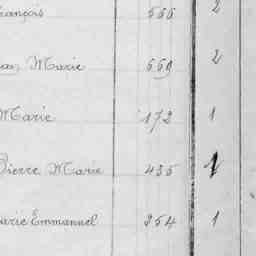 rançois 566 2
an Marie 669 2
Marie 172 1
Pierre Marie 435 1
arie Emmanuel 254 1